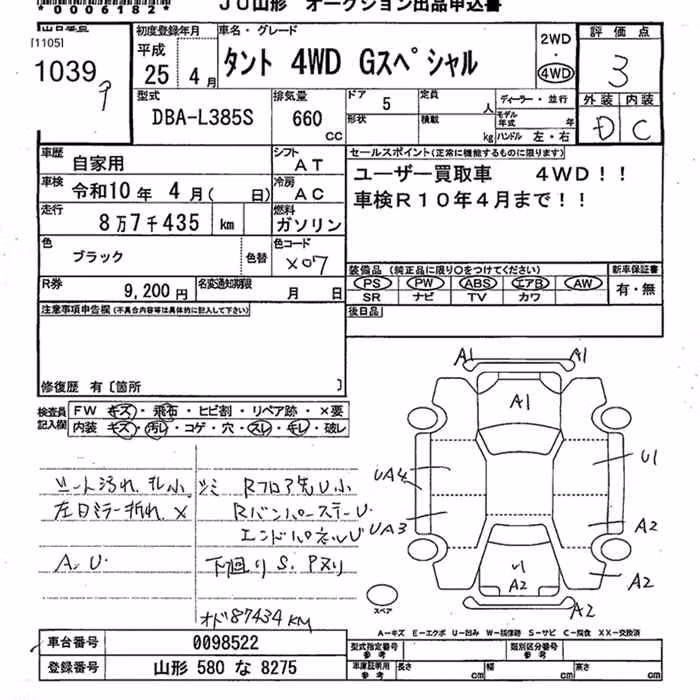 *0006182*
JU山形 オークション出品申込書
[1105]
1039
初度登録年月
平成
25年 4月
車名・グレード
タント 4WD Gスペシャル
2WD
4WD
評価点
3
外装 内装
D C
型式
DBA-L385S
排気量
660
CC
ドア
5
定員
人
形状
積載
kg
ディーラー・並行
モデル年式
年
ハンドル 左・右
車歴
自家用
シフト
AT
車検
令和10年 4月( 日)
冷房
AC
走行
8万7千435 km
燃料
ガソリン
色
ブラック
色替
色コード
X07
R券
9,200円
名変通知期限
月 日
セールスポイント(正常に機能するものに限ります)
ユーザー買取車 4WD!!
車検R10年4月まで!!
装備品(純正品に限り○をつけてください)
新車保証書
PS PW ABS エアB AW
有・無
SR ナビ TV カワ
後日品
注意事項申告欄(不具合内容等は具体的に記入して下さい)
修復歴 有〔箇所 〕
検査員
記入欄
FW キズ・飛石・ヒビ割・リペア跡・×要
内装 キズ・汚れ・コゲ・穴・スレ・キレ・破レ
シート汚れ、キレ小
左日ミラー折れ X
A、U、
ツミ Rフロア先U小
RバンパーステーU、
エンドパネルU
下廻りS、Pヌリ
オド87434KM
A1
A1
A1
UA4
UA3
U1
A2
A2
U1
A2
A2
スペア
A-キズ E-エクボ U-凹み W-補修跡 S-サビ C-腐食 XX-交換済
車台番号
0098522
登録番号
山形 580 な 8275
型式指定番号
参考
類別区分番号
参考
車庫証明用
参考
長さ
cm
幅
cm
高さ
cm